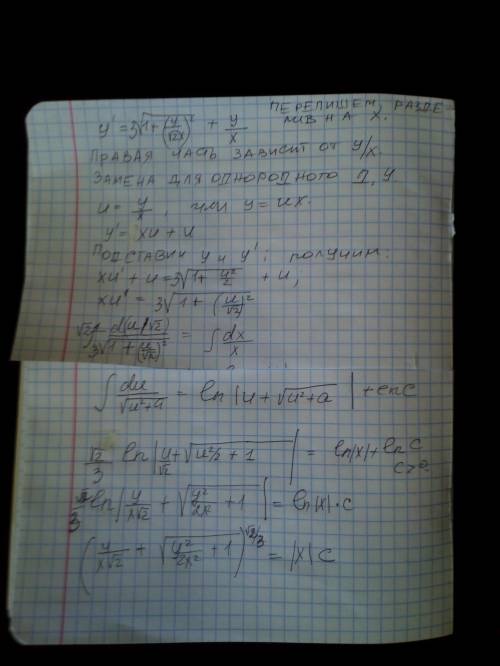 ПЕРЕПИШЕМ, РАЗДЕ
ЛИВ НА X.
y' = 3√(1+(y/√2x)²) + y/x
ПРАВАЯ ЧАСТЬ ЗАВИСИТ ОТ y/x.
ЗАМЕНА ДЛЯ ОДНОРОДНОГО Д.У.
u = y/x, ИЛИ y = ux.
y' = xu + u
ПОДСТАВИМ y И y'; ПОЛУЧИМ:
xu' + u = 3√(1+u²/2) + u,
xu' = 3√(1+(u/√2)²)
√2∫ d(u/√2)/(3√(1+(u/√2)²)) = ∫ dx/x
∫ du/√(u²+a) = ln|u+√(u²+a)| + lnc
√2/3 ln|u/√2+√(u²/2+1)| = ln|x| + ln C
C>0.
√2/3 ln|y/x√2 + √(y²/2x²+1)| = ln|x|·C
(y/x√2 + √(y²/2x²+1))^√2/3 = |x|C